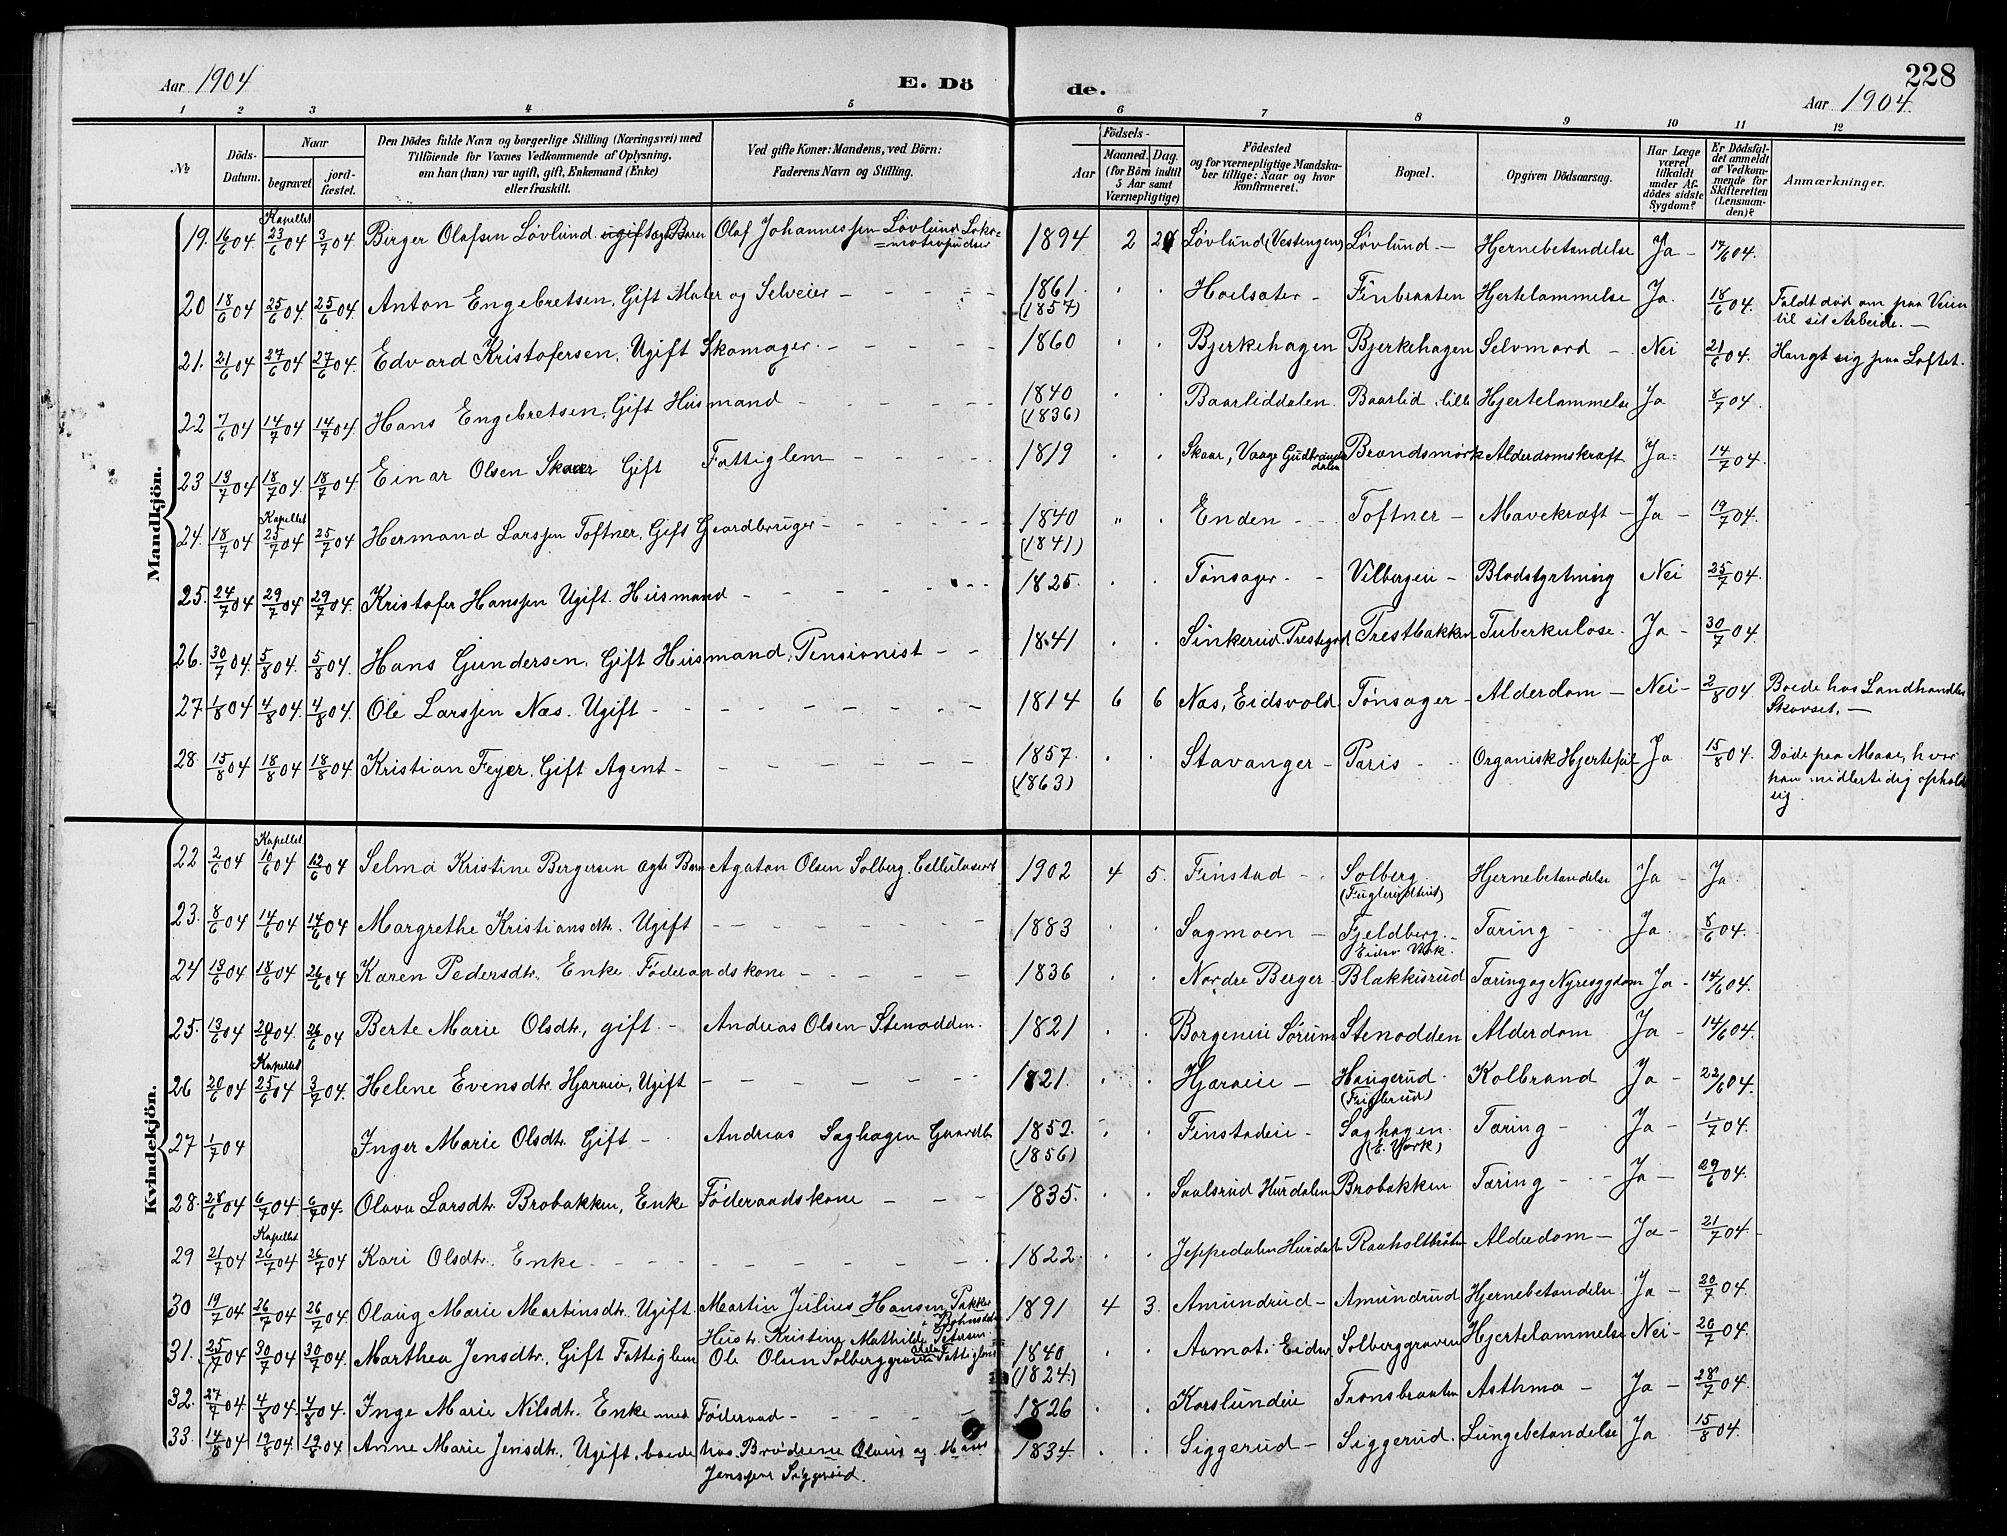 228
Aar 1904 E. Dö de. Aar 1904.
1 2 3 4 5 6 7 8 9 10 11 12
№ Döds-Datum. Naar begravet jord-fæstet. Den Dödes fulde Navn og borgerlige Stilling (Næringsvei) med Tilföiende for Voxnes Vedkommende af Oplysning, om han (hun) var ugift, gift, Enkemand (Enke) eller fraskilt. Ved gifte Koner: Mandens, ved Börn: Faderens Navn og Stilling. Födsels- Aar Maaned. Dag. (for Börn indtil 5 Aar samt Værnepligtige) Födested og for værnepligtige Mandska-ber tillige: Naar og hvor konfirmeret. Bopæl. Opgiven Dödsaarsag. Har Læge været tilkaldt under Af-dödes sidste Sygdom? Er Dödsfal-det anmeldt af Vedkom-mende for Skifteretten (Lensman-den)? Anmærkninger.
Mandkjön.
19. 16/6 04 Kapellet 23/6 04 3/7 04. Birger Olafsen Løvlund ugift ægte Barn Olaf Johannessen Løvlund Loko-motivpudser 1894 2 Løvlund (Vestengen) Løvlund – Hjernebetændelse Ja – 17/6 04.
20 18/6 04 25/6 04. 25/6 04. Anton Engebretsen, Gift Maler og Selveier – – – – 1861. (1857) Hoelsæter – Finbraaten Hjertelammelse Ja. 18/6 04. Faldt død om paa Veien til sit Arbeide. –
21. 21/6 04 27/6 04 27/6 04. Edvard Kristofersen, Ugift Skomager. – – – – 1860 Bjerkehagen Bjerkehagen Selvmord – Nei 21/6 04. Hængt sig paa Loftet.
22 7/6 04 14/7 04 14/7 04 Hans Engebretsen, Gift Husmand – – – – 1840 (1836) Baarliddalen Baarlid lille Hjertelammelse Ja 8/7 04.
23 13/7 04 18/7 04. 18/7 04. Einar Olsen Skaar Gift Fattiglem – – – – 1819 Skaar, Vaage Gudbrands-dalen Brandsmørk Alderdomskraft Ja – 14/7 04.
24. 18/7 04 Kapellet 25/7 04 25/7 04 Hermand Larssen Toftner, Gift Gaardbruger – – – – 1840 (1841) Enden – – Toftner – Mavekræft – Ja – 19/7 04.
25. 24/7 04 29/7 04 29/7 04. Kristofer Hanssen Ugift. Husmand – – – – 1825. Tønsager. – Vilbergeie – Blodstyrtning Nei 25/7 04.
26. 30/7 04. 5/8 04. 5/8 04. Hans Gundersen, Gift Husmand, Pensionist – – 1841 Sinkerud, Prestegrd Prestbakken Tuberkulose. Ja – 30/7 04.
27 1/8 04 4/8 04 4/8 04. Ole Larssen Næs. Ugift – – – – 1814 6 6 Næs, Eidsvold. Tønsager – Alderdom – Nei – 2/8 04. Boede hos Landhandler Skovset. –
28. 15/8 04 18/8 04 18/8 04 Kristian Feyer, Gift Agent – – – – 1857. (1863) Stavanger – Paris – Organisk Hjertefeil Ja 15/8 04. Døde paa Maae, hvor han midlertidig opholdt sig.
Kvindekjön.
22 2/6 04 Kapellet 10/6 04 12/6 04 Selma Kristine Bergersen ægte Barn Agaton Olsen Solberg. Cellulosearb 1902 4 5. Finstad – Solberg. Hjernebetændelse Ja – Ja
23. 8/6 04 14/6 04 14/6 04 Margrethe Kristiansdtr. Ugift – – – – 1883 Sagmoen – Fjeldberg. Eidsv Værk. Tæring – Ja 8/6 04.
24 13/6 04 18/6 04 26/6 04 Karen Pedersdtr. Enke Føderaadskone – – – – 1836 Nordre Berger Blakkisrud Tæring og Nyresygdom Ja – 14/6 04.
25. 13/6 04 20/6 04. 26/6 04 Berte Marie Olsdtr, gift. – Andreas Olsen Stenodden. 1821 Borgeneie Sørum Stenodden Alderdom Ja – 14/6 04.
26 20/6 04 Kapellet 25/6 04 3/7 04. Helene Evensdtr. Hjæraeie, Ugift – – – – 1821. Hjæraeie – Haugerud. (Friglerud) Kolbrand Ja – 22/6 04.
27 1/7 04 Inger Marie Olsdtr. Gift – Andreas Saghagen Gaardbr 1852. (1856) Finstadeie – Saghagen. (E. Værk) Tæring – Ja – 1/7 04.
28. 28/6 04 6/7 04. 6/7 04. Olava Larsdtr. Brobakken, Enke Føderaadskone – – – 1835. Saalsrud Hurdalen Brobakken Tæring – – Ja – 29/6 04.
29 21/7 04 Kapellet 26/7 04 26/7 04 Kari Olsdtr. Enke – – – – 1822 Jeppedalen Hurdalen Raaholtbråten Alderdom – Ja – 21/7 04.
30 19/7 04 26/7 04 26/7 04 Olaug Marie Martinsdtr. Ugift. Martin Julius Hansen Pakker i Bøhnsdalen 1891 4 3. Amundrud – Amundrud Hjernebetændelse Ja – 20/7 04.
Hustr. Kristine Mathilde Petersen
31. 25/7 04 30/7 04 30/7 04 Marthea Jensdtr, Gift Fattiglem Ole Olsen Solberggraven Fattiglem 1840 (1824) Aamot i Eidsv. Solberggraven Hjertelammelse Nei – 26/7 04.
32. 27/7 04 4/8 04. 4/8 04. Inge Marie Nilsdtr. Enke med Føderaad – – – 1826 Korslundeie Tronsbraaten Asthma – Ja – 28/7 04.
33. 14/8 04 19/8 04. 19/8 04 Anne Marie Jensdtr, Ugift, boede hos Brødrene Olaus og Hans 1834. Siggerud – Siggerud. Lungebetændelse Ja 15/8 04.
Jenssen Siggerud.